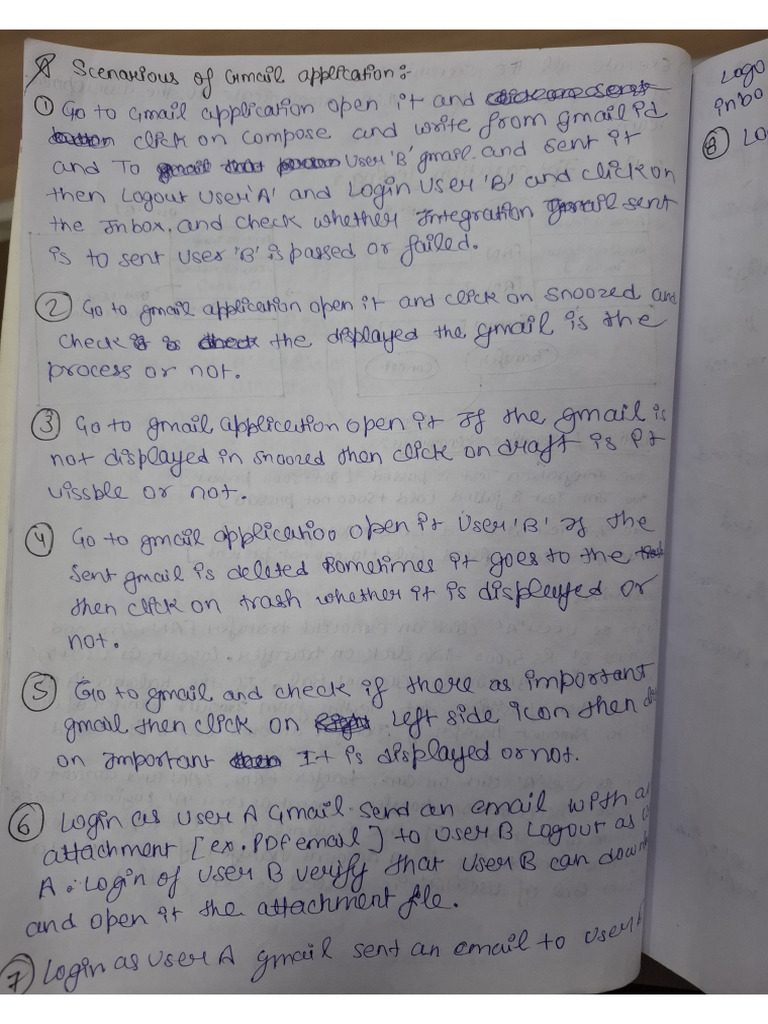 Scenarious of Gmail application:
① Go to Gmail application open it and
click on compose and write from gmail id
and To User 'B' gmail. and sent it
then Logout User 'A' and Login User 'B' and click on
the Inbox. and check whether Integration sent
is to sent User 'B' is passed or failed.
② Go to gmail application open it and click on snoozed and
check the displayed the gmail is the
process or not.
③ Go to gmail application open it If the gmail is
not displayed in snoozed then click on draft is it
vissble or not.
④ Go to gmail application open it User 'B' If the
sent gmail is deleted sometimes it goes to the
then click on trash whether it is displayed or
not.
⑤ Go to gmail and check if there as important
gmail then click on Left side icon then
on Important It is displayed or not.
⑥ Login as User A Gmail send an email with
attachment [ex. PDF email] to User B Logout as
A. Login of User B verify that User B can down
and open it the attachment file.
⑦ Login as User A gmail sent an email to User
Logo
inbo
⑧ Lo